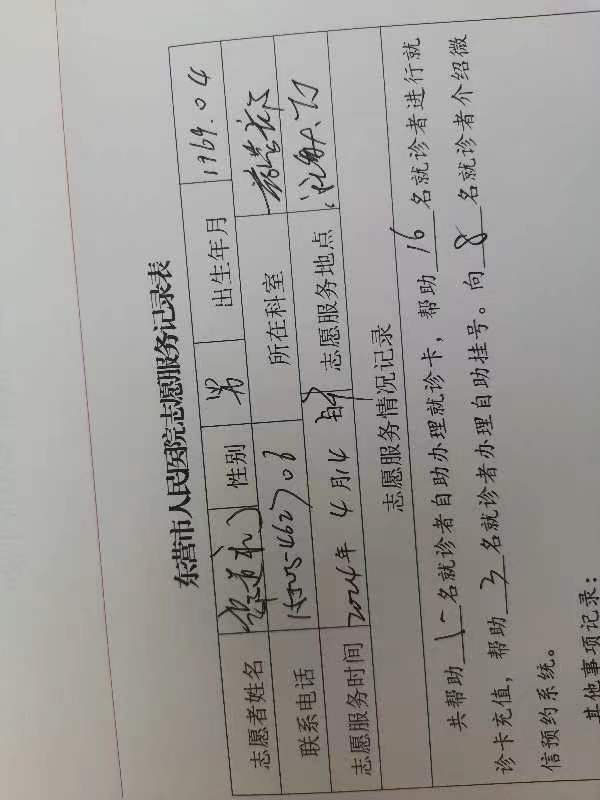 东营市人民医院志愿服务记录表
志愿者姓名 性别 男 出生年月 1969.04
联系电话 所在科室
志愿服务时间 2024年 4月14 志愿服务地点
志愿服务情况记录
共帮助 15 名就诊者自助办理就诊卡，帮助 16 名就诊者进行就
诊卡充值，帮助 3 名就诊者办理自助挂号。向 8 名就诊者介绍微
信预约系统。
其他事项记录：